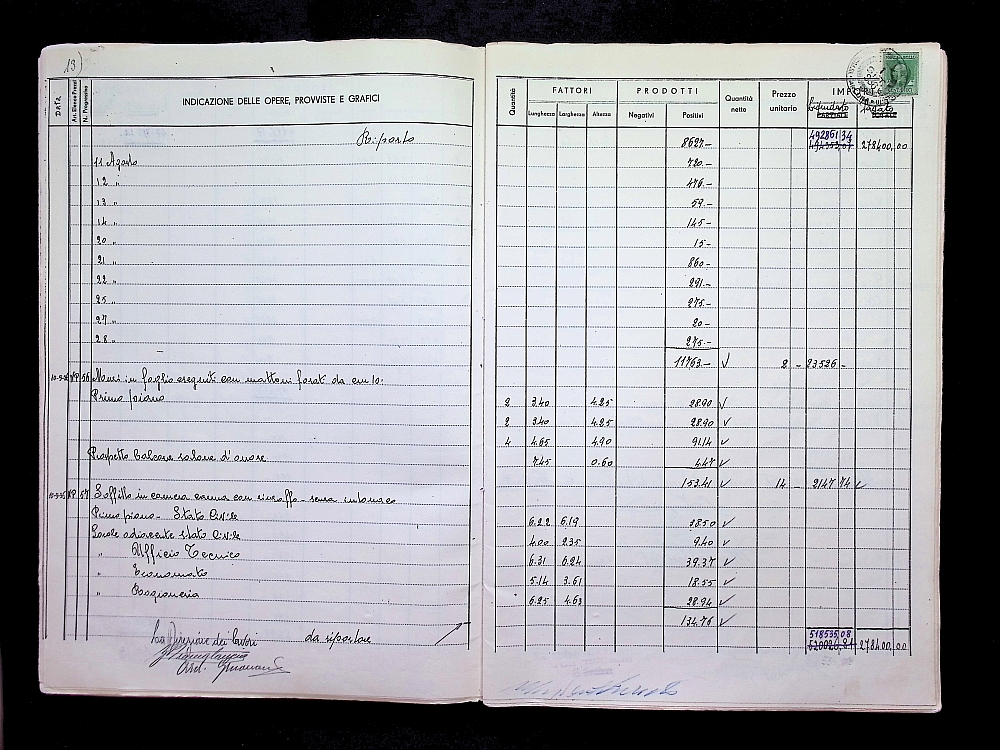 13)
DATA
N. Progressivo
INDICAZIONE DELLE OPERE, PROVVISTE E GRAFICI
Quantità
FATTORI
Lunghezza Larghezza Altezza
PRODOTTI
Negativi Positivi
Quantità netto
Prezzo unitario
Liquidato
PARZIALE
TOTALE
Riporto 8627.- 492861 34 278400,00
11 Agosto 720.-
12 " 476.-
13 " 59.-
14 " 145-
20 " 15-
21 " 860-
22 " 291.-
25 " 275.-
27 " 20-
28 " 275.-
11763.- 2 - 23526 -
56 Muri in foglio eseguiti con mattoni forati da cm 10:
Primo piano 2 3.40 4.25 28.90
2 3.40 4.25 28.90
4 4.65 4.90 91.14
Prospetto balcone salone d'onore 7.45 0.60 4.47
153.41 14 - 2147 74
57 Soffitto in camera canna con rinzaffo - senza intonaco
Primo piano - Stato Civile 6.22 6.19 38.50
Locale adiacente stato Civile 4.00 2.35 9.40
" Ufficio Tecnico 6.31 6.24 39.37
" Economato 5.14 3.61 18.55
" Ragioneria 6.25 4.63 28.94
134.76
La Direzione dei lavori da riportare 518535,08
520026,81 278400,00